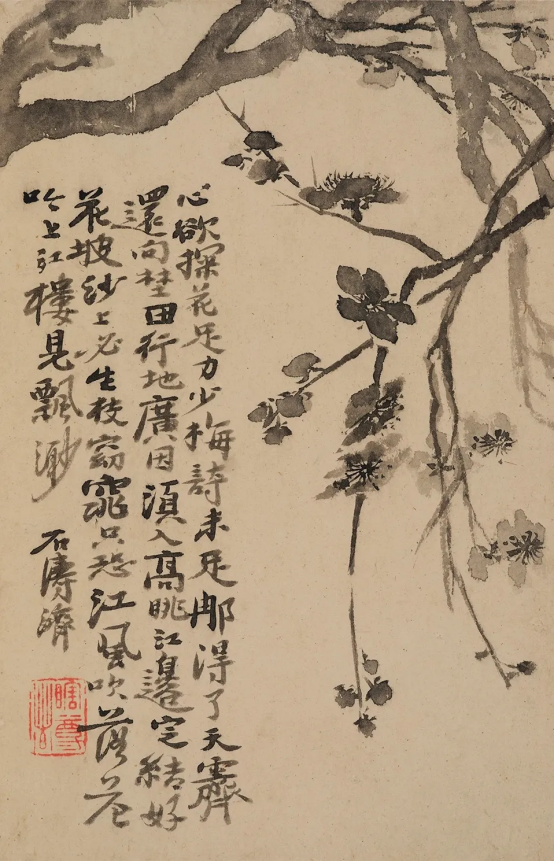 心欲探花足力少梅詩未足那得了天霽
還向埜田行地廣因須入高眺江邊定結好
花坡沙上必生枝窈窕只恐江風吹落花
吟上江樓見飄渺
石濤濟
瞎尊者